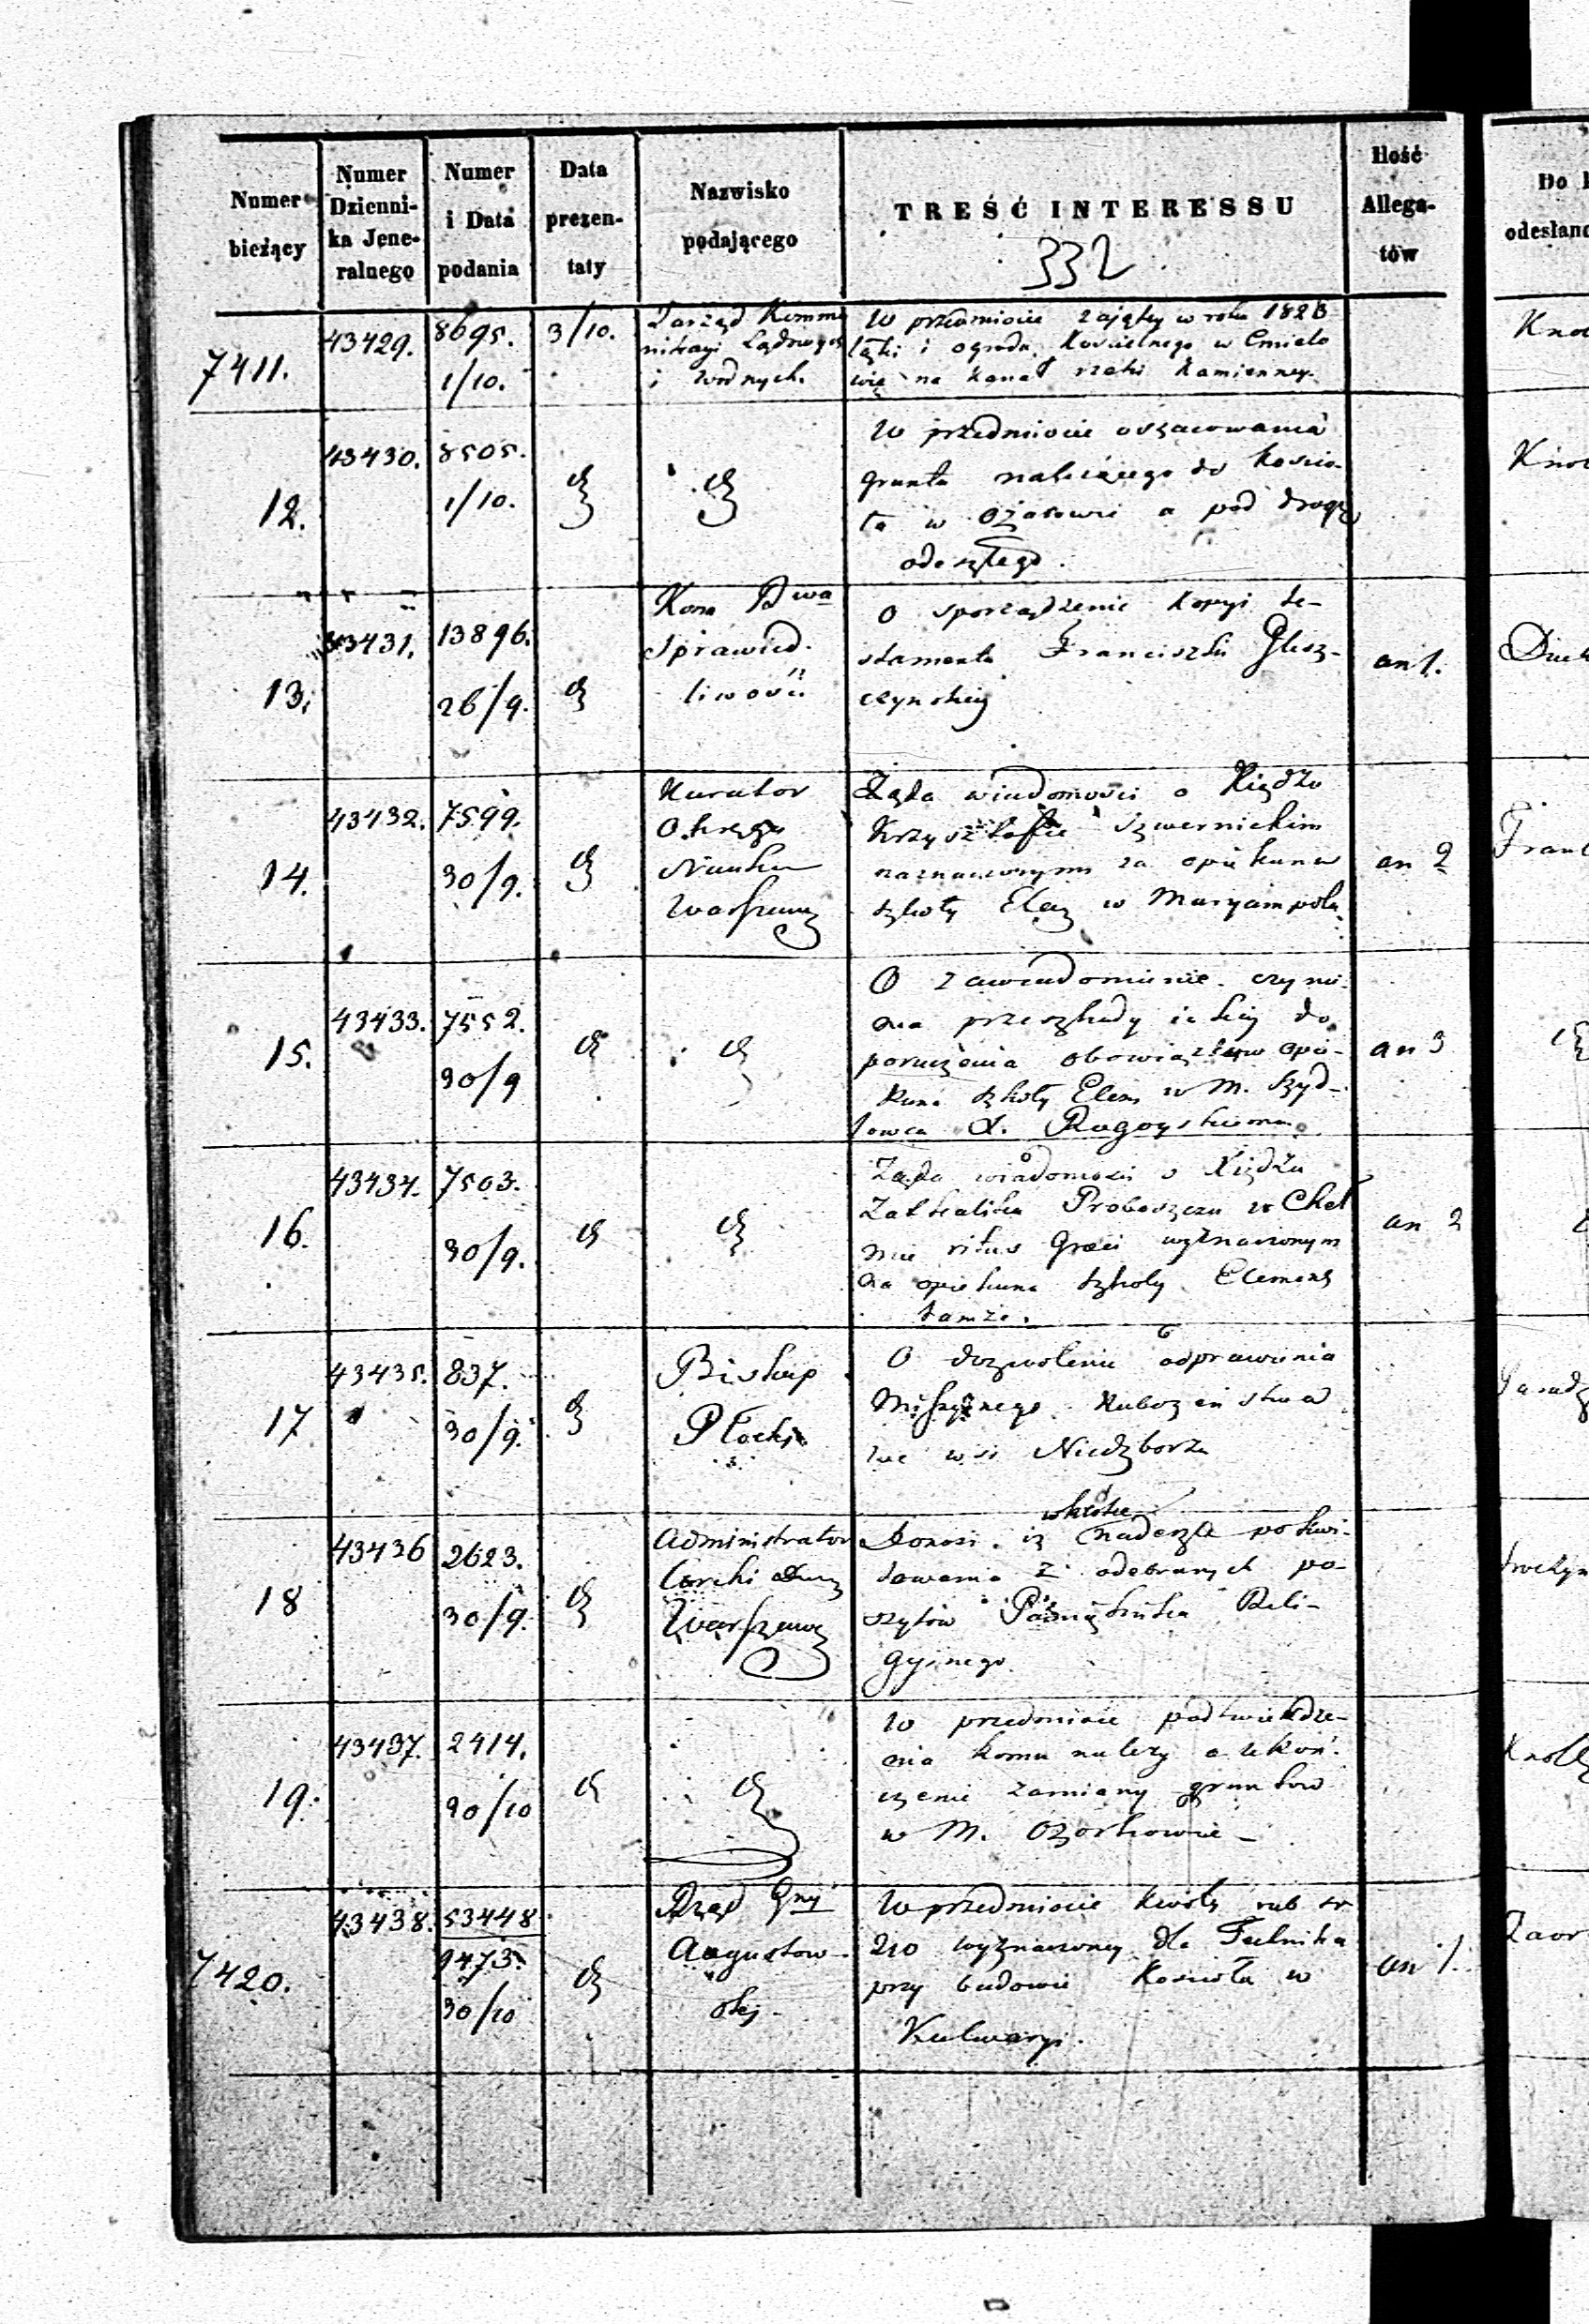 Numer bieżący
Numer Dzienni-ka Jene-ralnego
Numer i Data podania
Data prezen-taty
Nazwisko podającego
TREŚĆ INTERESSU
Ilość Allega-tów
332
7411.
43429.
8695.
1/10.
3/10.
Zarząd Kommu
nikacyi Lądowych
i wodnych.
W przedmiocie zajętey w roku 1823
łąki i ogrodu Kościelnego w Cmielo
wie na kanał rzeki Kamienney.
12.
43430.
8505.
1/10.
W przedmiocie oszacowania
gruntu należącego do kościo-
ła w Ożarowie a pod drogę
odeszłego.
13.
43431.
13896.
26/9.
Kom
Sprawied-
liwości
O sporządzenie kopyi te-
stamentu Franciszki Glisz-
czynskiey
an 1.
14.
43432.
7599.
30/9.
Kurator
Okręgu
Nauko
Warszaws
Żąda wiadomości o Xiędzu
Krzysztofie Szwernickim
naznaczonym za opiekuna
szkoły Elem w Maryampolu
an 2
15.
43433.
7552.
30/9
O zawiadomienie czy nie-
ma przeszkody iakiey do
poruczenia obowiązków opie-
kuna szkoły Elem w M. Szyd-
łowcu X. Rogoyskiemu
an 3
16.
43434.
7503.
30/9.
Żąda wiadomości o Xiędzu
Proboszczu w Cheł
mie ritus Graeci wyznaczonym
na opiekuna szkoły Elements
tamże.
an 2
17
43435.
837.
30/9.
Biskup
Płocki
O dozwolenie odprawienia
Missyinego Nabożeństwa
we wsi Niedzborzu
18
43436
2623.
30/9.
Administrator
Warszaws
wkrótce
Donosi iż nadeszle pokwi-
towania z odebranych po-
szytów Pamiętnika Reli-
gyinego.
19.
43437.
2414.
30/10
W przedmiocie potwierdze-
nia komu należy o ukoń-
czenie zamiany gruntów
w M. Ozorkowie -
7420.
43438.
53448
9473.
30/10
Rząd Gny
Augustow-
skiey
W przedmiocie kwoty rub sr
210 wyznaczoney dla Technika
przy budowie Kościoła w
Kalwaryi.
an 1.